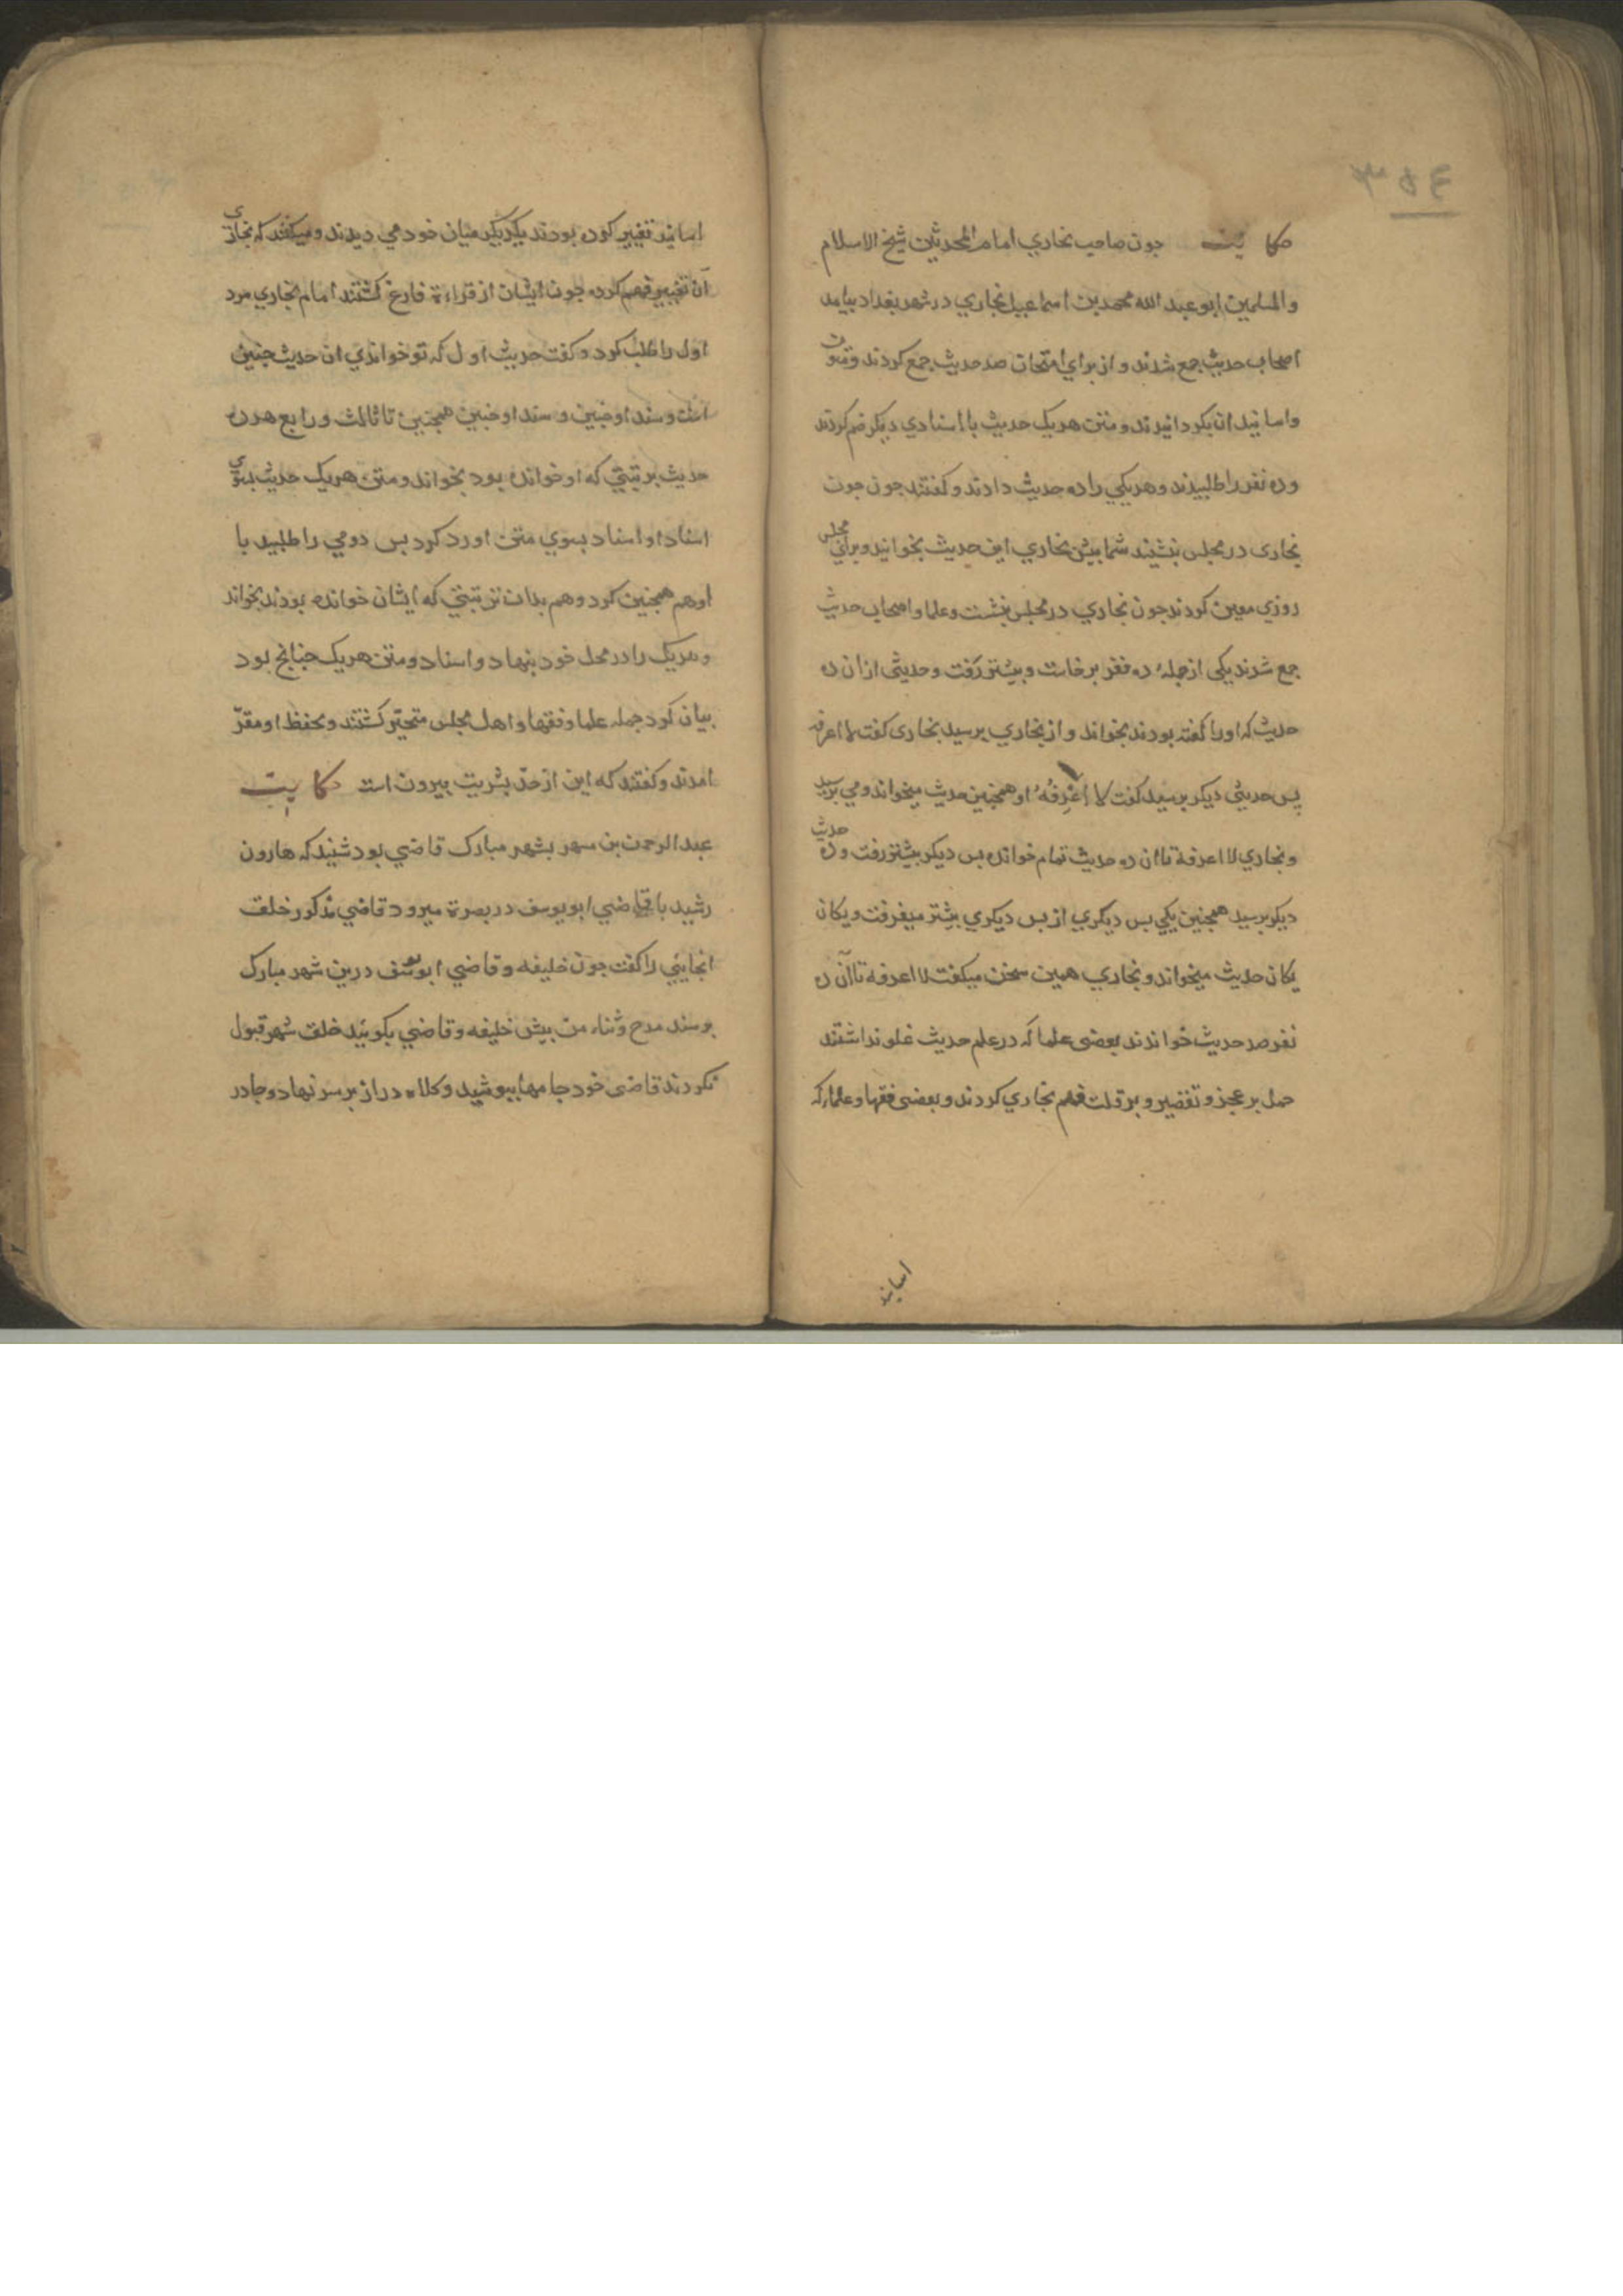 حکایت جون صاحب بخاري امام المحدثین شیخ الاسلام
والمسلمین ابو عبد الله محمد بن اسماعیل بخاري در شهر بغداد بیامد
اصحاب حدیث جمع شدند و از براي امتحان صد حدیث جمع کردند و متون
و اسانید ان بکردانیدند و متن هر یک حدیث با اسنادي دیکر ضم کردند
و ده نفر را طلبیدند و هر یکي را ده حدیث دادند و کفتند جون جون
بخاری در مجلس بنشیند شما بیش بخاري این حدیث بخوانید و براي مجلس
روزي معین کردند جون بخاري در مجلس بنشست و علما و اصحاب حدیث
جمع شدند یکی از جملهٔ ده نفر برخاست و بیشتر رفت و حدیثی از ان ده
حدیث که اورا کفته بودند بخواند و از بخاري برسید بخاری کفت لا اعرفه
پس حدیثی دیکر برسید کفت لا اَعْرِفُهُ او همجنین حدیث میخواند و می برسید
و بخاري لا اعرفة تا ان ده حدیث تمام خوانده بس دیکر بیشتر رفت و ده حدیث
دیکر برسید همجنین یکي بس دیکري از بس دیکري بیشتر میفرفت و یکان
یکان حدیث میخواند و بخاري همین سخن میکفت لا اعرفة تا آن ده
نفر صد حدیث خواندند بعضی علما که در علم حدیث غلو نداشتند
حمل بر عجز و تقصیر و بر قلت فهم بخاري کردند و بعضی فقها و علماء که
اسانید
اسانید تغییر کرده بودند یکدیکر میان خود می دیدند و میکفتند که بخاری
آن تغییر فهم کرده جون ایشان از قراءة فارغ کشتند امام بخاري مرد
اول را طلب کرد و کفت حدیث اول که تو خواندي ان حدیث جنین
است و سند او جنین و سند او جنین همجنین تا ثالث و رابع هر ده
حدیث بر ترتیبی که او خوانده بود بخواند و متن هر یک حدیث بسوي
اسناد او اسناد بسوي متن اورد کرد بس دومي را طلبید با
او هم همجنین کرد و هم بدان ترتیبی که ایشان خوانده بودند بخواند
و هر یک را در محل خود بنهاد و اسناد و متن هر یک جنانج بود
بیان کرد جمله علما و فقها و اهل مجلس متحیّر کشتند و بحفظ او مقرّ
امدند و کفتند که این از حدّ بشریت بیرون است حکایت
عبد الرحمن بن سهر بشهر مبارک قاضي بود شنید که هارون
رشید با قاضي ابو یوسف در بصرة میرود قاضي مذکور خلق
انجایی را کفت جون خلیفه و قاضي ابو یوسف درین شهر مبارک
برسند مدح و ثناء من بیش خلیفه و قاضي بکویند خلق شهر قبول
نکردند قاضی خود جامها ببوشید و کلاه دراز بر سر نهاد و جادر